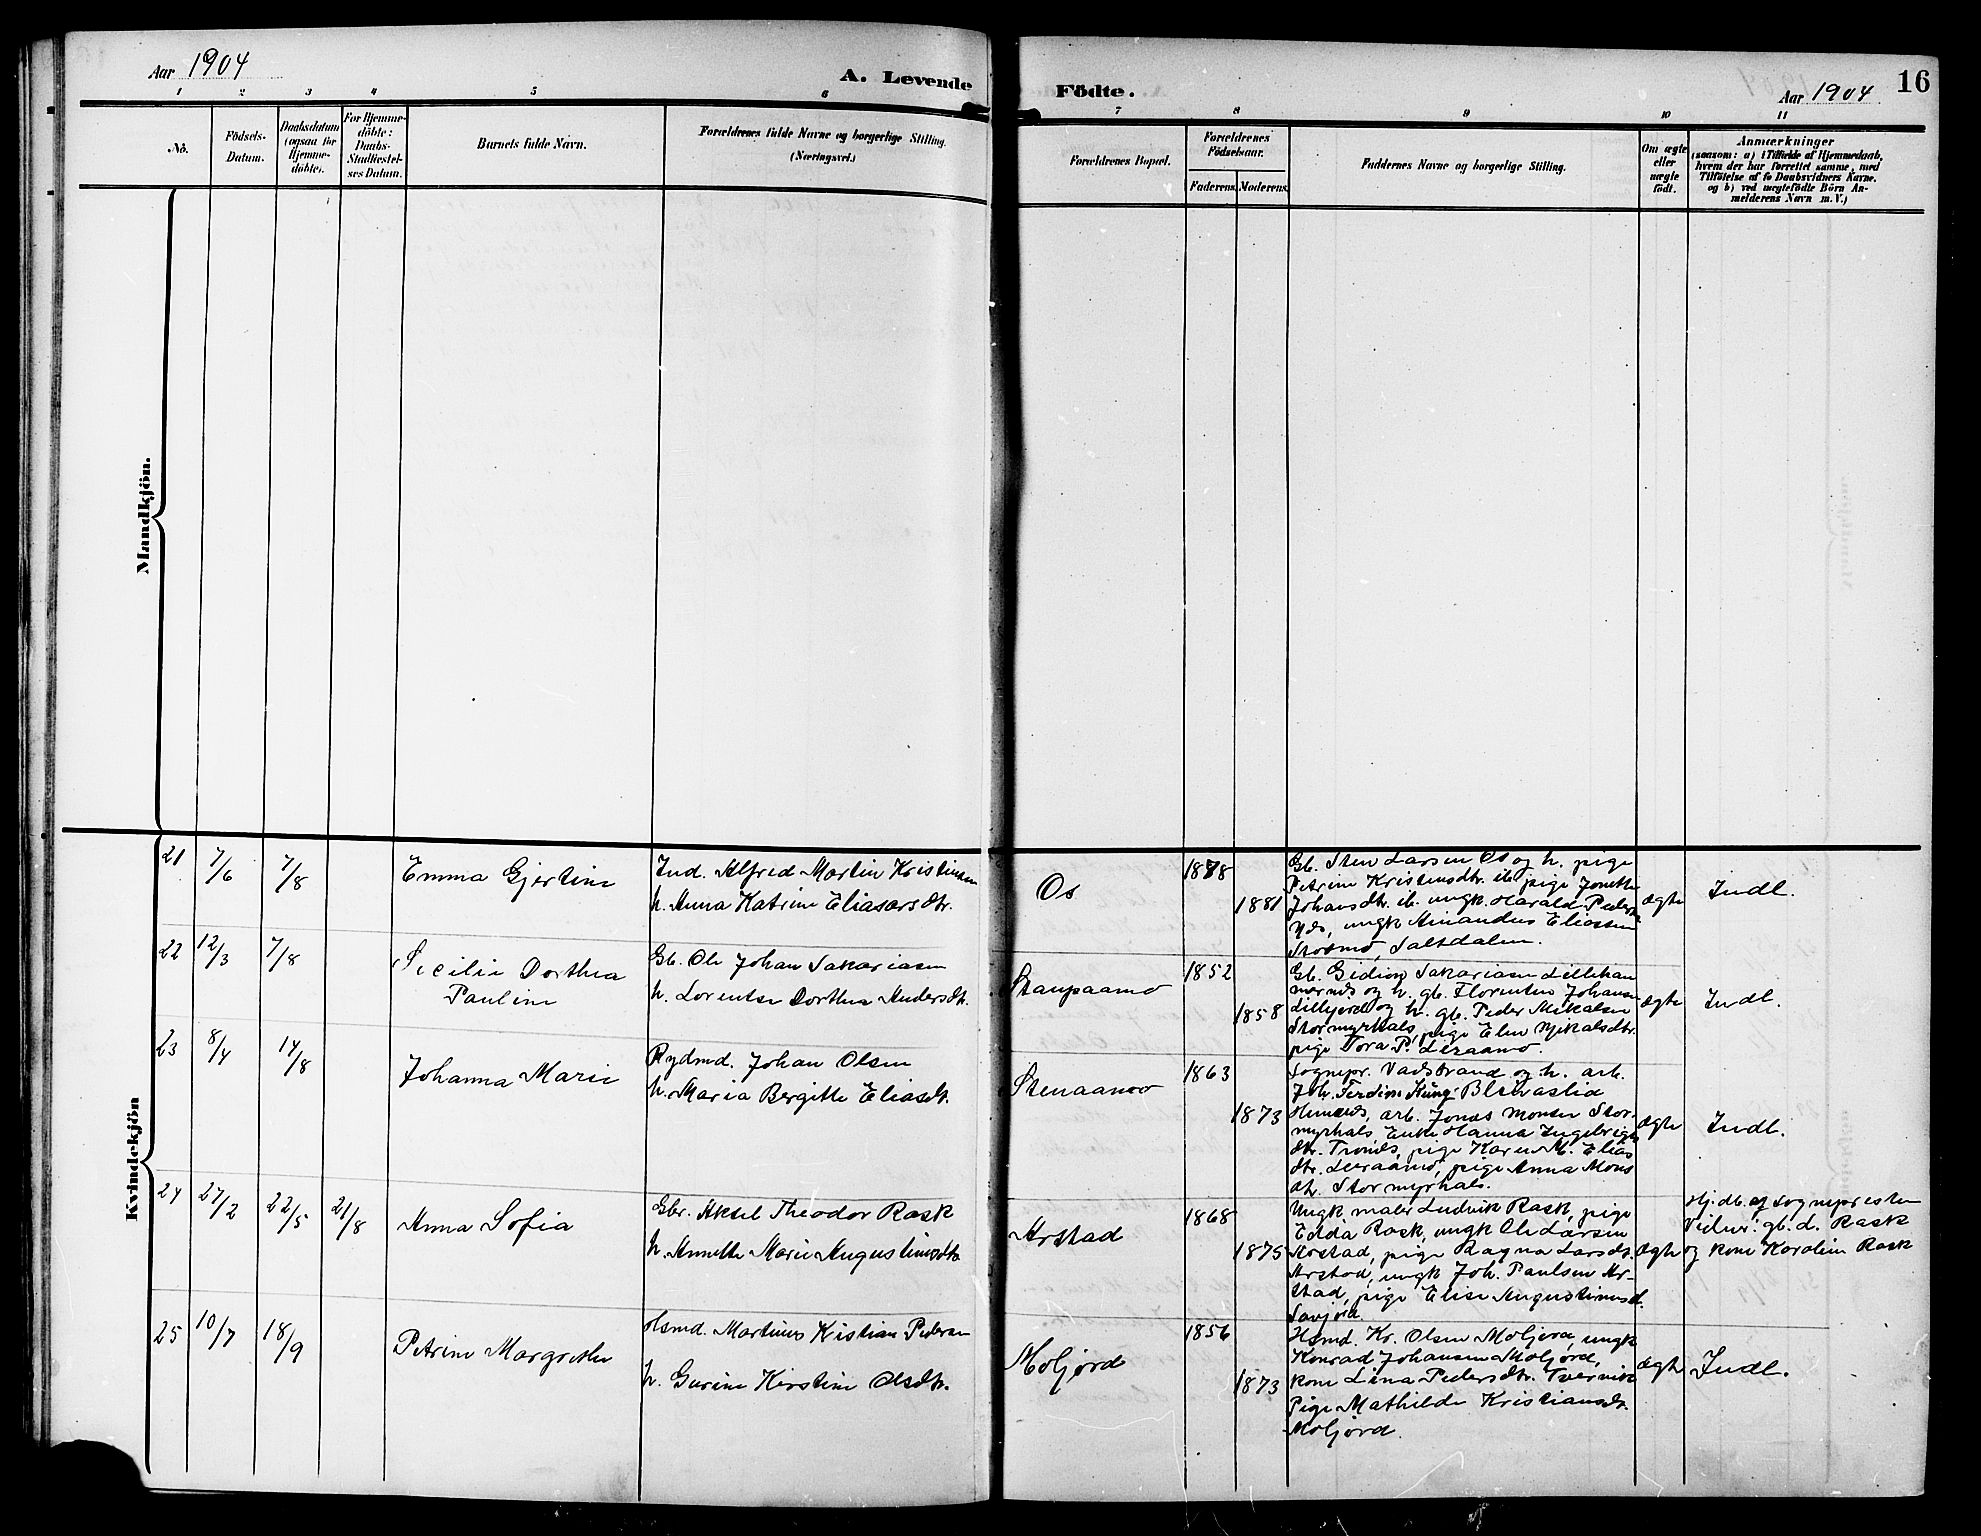 Aar 1904
A. Levende
Födte.
Aar 1904
16
1 2 3 4 5 6 7 8 9 10 11
No.
Födsels-
Datum.
Daabsdatum
(ogsaa for
Hjemme-
döbte).
For Hjemme-
döbte:
Daabs-
Stadfæstel-
ses Datum.
Barnets fulde Navn.
Forældrenes fulde Navne og borgerlige Stilling.
(Næringsvei.)
Forældrenes Bopæl.
Forældrenes
Födselsaar.
Faderens. Moderens.
Faddernes Navne og borgerlige Stilling.
Om ægte
eller
uægte
født.
Anmærkninger
(saasom: a) i Tilfælde af Hjemmedaab,
hvem der har forrettet samme, med
Tilføielse af to Daabsvidners Navne.
og b) ved uægtefödte Börn An-
melderens Navn m. V.)
Mandkjön.
Kvindekjön
21
7/6
7/8
Emma Gjertine
Ind. Alfred Martin Kristensen
h. Anna Katrine Eliasarsdtr.
Os
1878
1881
Gb. Sten Larsen Os og h. pige
Petrine Kristensdtr. ib. pige Jonette
Johansdtr. ib. ungk. Harald Peders.
Nds, ungk Amandus Eliassen
Storsmo, Saltdalen.
ægte
Indl.
22
12/3
7/8
Secilie Dorthea
Pauline
Gb. Ole Johan Sakariasen
h. Lorentse Dorthea Andersdtr.
Staupaamo
1852
1858
Gb. Gedion Sakariasen Lilleham
mernes og h. gb. Florentus Johansen
Lillejord og h. gb. Peder Mikalsen
Stormyrhals, pige Elen Mikalsdtr.
pige Tora P. Leiraamo.
ægte
Indl.
23
8/4
14/8
Johanna Marie
Rydmd. Johan Olsen
h. Maria Bergitte Eliasdt.
Stenaamo
1863
1873
Sognepr. Vadstrand og h. arb.
Joh. Ferdin. Kung Blesvaslid
Hemnes, arb. Jonas Monsen Stor-
myrhals, Enke Hanna Ingebrigts
dtr. Trones, pige Karen M. Elias
dtr. Leiraamo, pige Anna Mons
dt. Stormyrhals.
ægte
Indl.
24
27/2
22/5
21/8
Anna Sofia
Gbr. Aksel Theodor Rask
h. Annette Marie Augustinusdtr
Arstad
1868
1875
Ungk maler Ludvik Rask, pige
Edda Rask, ungk Ole Larsen
Arstad, pige Ragna Larsdt.
Arstad, ungk Joh. Paulsen Ar-
stad, pige Elise Augustinusd.
Savjord.
ægte
Hj. db. af sognepresten
Vidner: gb. d. Rask
og kone Karoline Rask
25
10/7
18/9
Petrine Margrethe
Hsmd. Martinus Kistian Pedersen
h. Gurine Kirstine Olsdtr.
Moljord
1856
1873
Hsmd. Kr. Olsen Moljord, ungk
Konrad Johansen Moljord,
kone Lina Pedersdtr. Tvervik
Pige Mathilde Kristiansdt.
Moljord.
ægte
Indl.